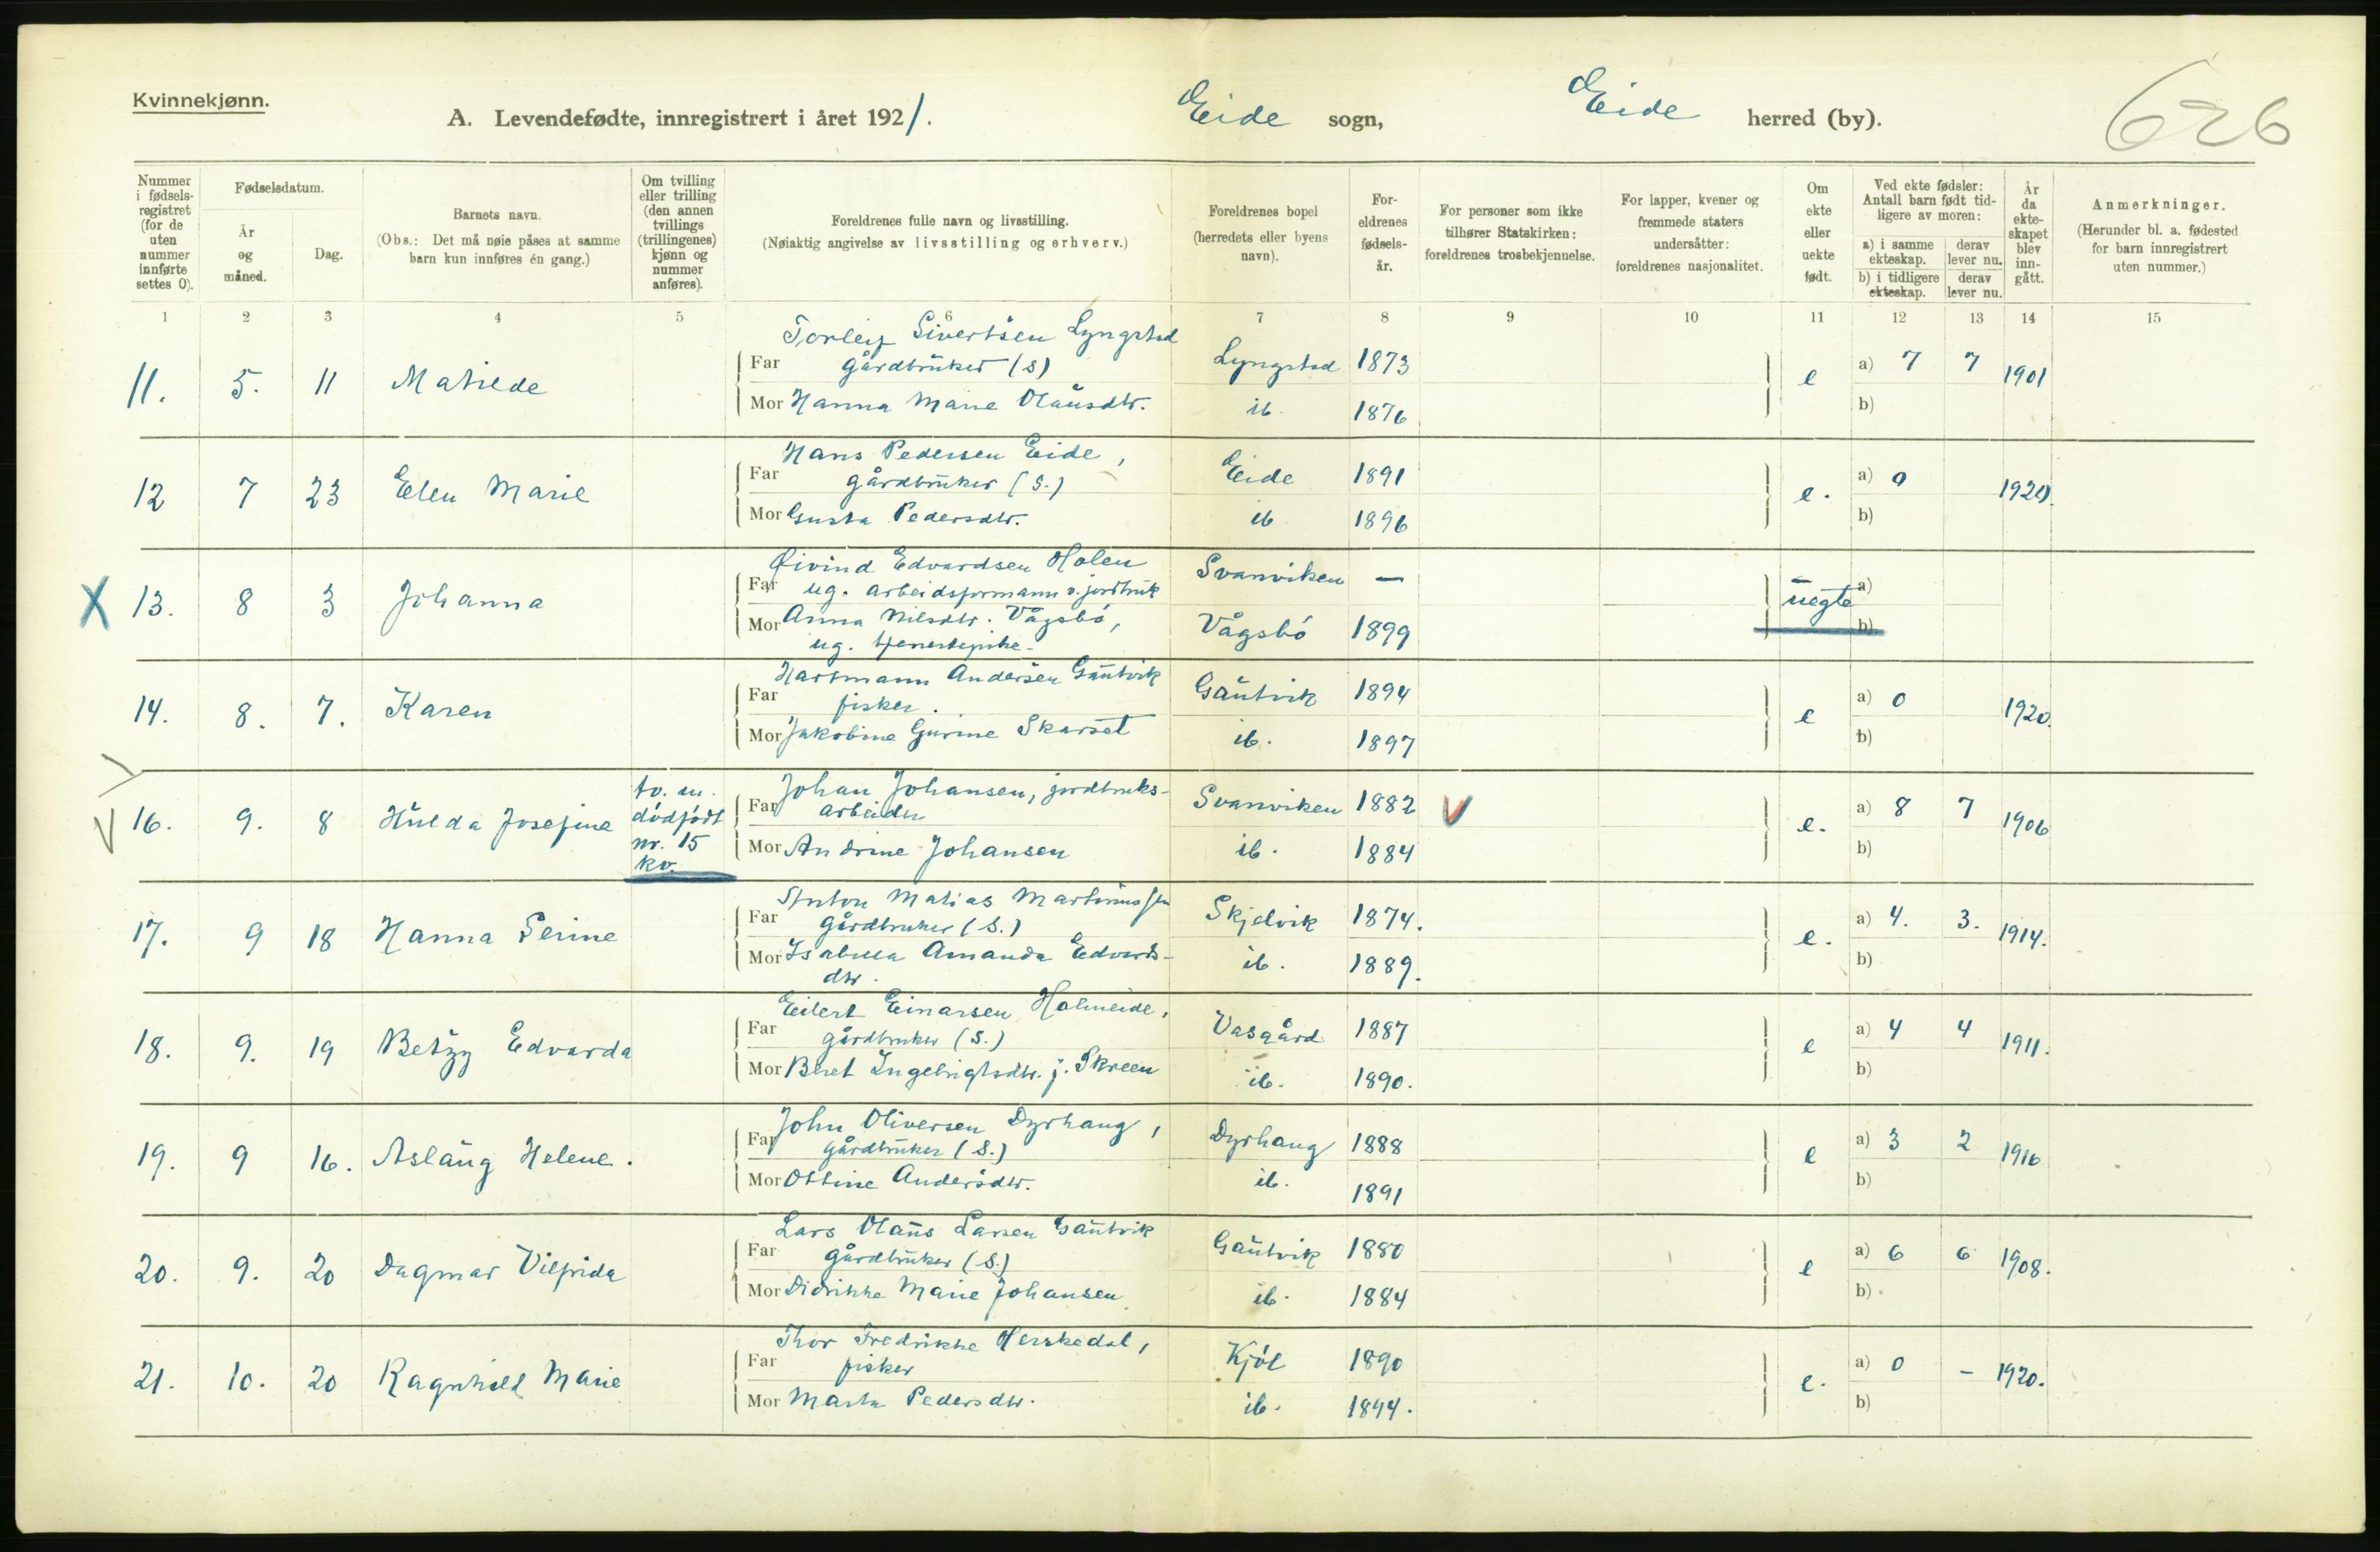 Kvinnekjønn.
A. Levendefødte, innregistrert i året 1921. Eide sogn, Eide herred (by).
626
Nummer i fødselsregistret (for de uten nummer innførte settes 0).
Fødselsdatum.
År og måned.
Dag.
Barnets navn.
(Obs.: Det må nøie påses at samme barn kun innføres én gang.)
Om tvilling eller trilling (den annen tvillings (trillingenes) kjønn og nummer anføres).
Foreldrenes fulle navn og livsstilling.
(Nøiaktig angivelse av livsstilling og erhverv.)
Foreldrenes bopel (herredets eller byens navn).
Foreldrenes fødselsår.
For personer som ikke tilhører Statskirken: foreldrenes trosbekjennelse.
For lapper, kvener og fremmede staters undersåtter: foreldrenes nasjonalitet.
Om ekte eller uekte født.
Ved ekte fødsler: Antall barn født tidligere av moren:
a) i samme ekteskap. derav lever nu.
b) i tidligere ekteskap. derav lever nu.
År da ekteskapet blev inngått.
Anmerkninger.
(Herunder bl. a. fødested for barn innregistrert uten nummer.)
1 2 3 4 5 6 7 8 9 10 11 12 13 14 15
11. 5. 11 Matilde
Far Torleif Sivertsen Lyngstad
gårdbrüker (S) Lyngstad 1873
Mor Hanna Marie Olaüsdtr. ib. 1876
e a) 7 7 1901
b)
12 7 23 Elen Marie
Far Hans Pedersen Eide,
gårdbrüker (S.) Eide 1891
Mor Gusta Pedersdtr. ib 1896
e. a) 0 1920.
b)
X 13. 8 3 Johanna
Far Øivind Edvardsen Holen
ug. arbeidsformann v. jordbruk Svanviken —
Mor Anna Nilsdtr. Vågsbó,
ug. tjenestepike Vågsbó 1899
üegte a)
b)
14. 8. 7. Karen
Far Hartmann Andersen Gaütvik
fisker. Gaütvik 1894
Mor Jakobine Gurine Skarset ib. 1897
e a) 0 1920.
b)
V 16. 9. 8 Hülda Josefine
tv. m.
dódfódt
nr. 15
kv.
Far Johan Johansen, jordbruks-
arbeider Svanviken 1882 V
Mor Andrine Johansen ib. 1884
e. a) 8 7 1906
b)
17. 9 18 Hanna Perine
Far Anton Matias Martinussen
gårdbruker (S.) Skjelvik 1874.
Mor Isabella Amanda Edvards-
dtr. ib. 1889.
e. a) 4. 3. 1914.
b)
18. 9. 19 Betzy Edvarda
Far Eilert Einarsen Holmeide,
gårdbruker (S.) Vasgård 1887
Mor Beret Ingebrigtsdtr. f. Skreen ib. 1890.
e a) 4 4 1911.
b)
19. 9 16. Aslaüg Helene.
Far John Oliversen Dyrhaug,
gårdbrüker (S.) Dyrhaug 1888
Mor Ottine Andersdtr. ib. 1891
e a) 3 2 1916
b)
20. 9. 20 Dagmar Vilfrida
Far Lars Olaüs Larsen Gaütvik
gårdbrüker (S.) Gaütvik 1880
Mor Didrikke Marie Johansen ib. 1884
e a) 6 6 1908.
b)
21. 10. 20 Ragnhild Marie
Far Thor Fredrikke Herskedal,
fisker Kjól 1890
Mor Marta Pedersdtr. ib. 1894.
e. a) 0 – 1920.
b)